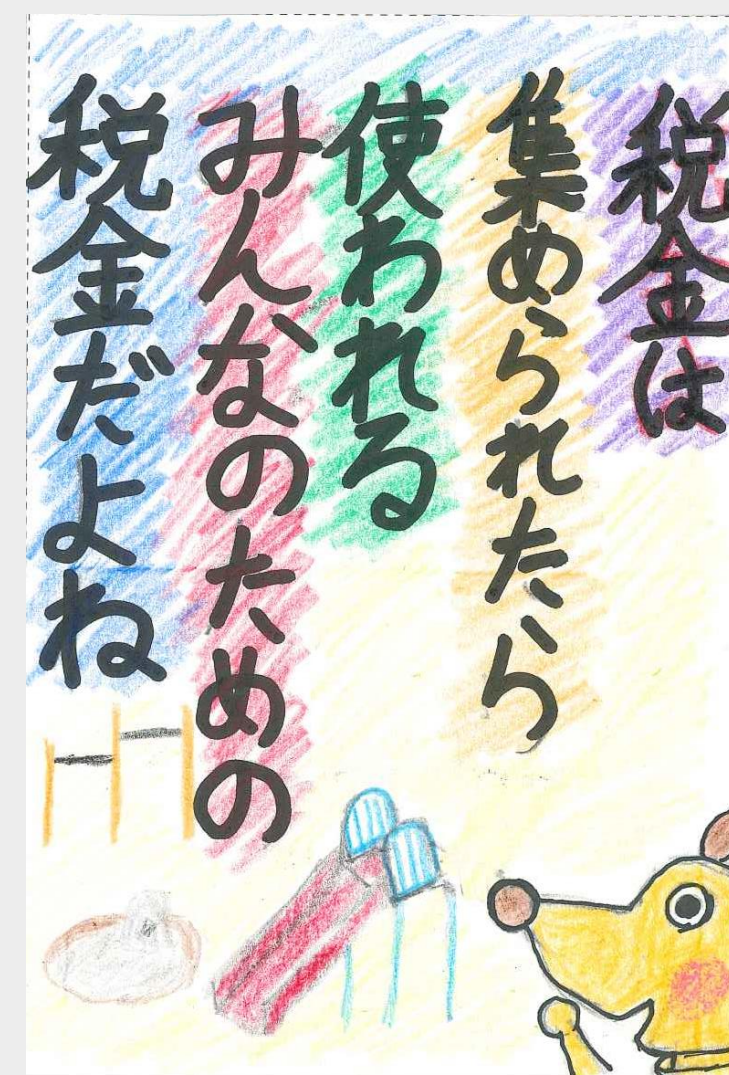 税金は
集められたら
使われる
みんなのための
税金だよね